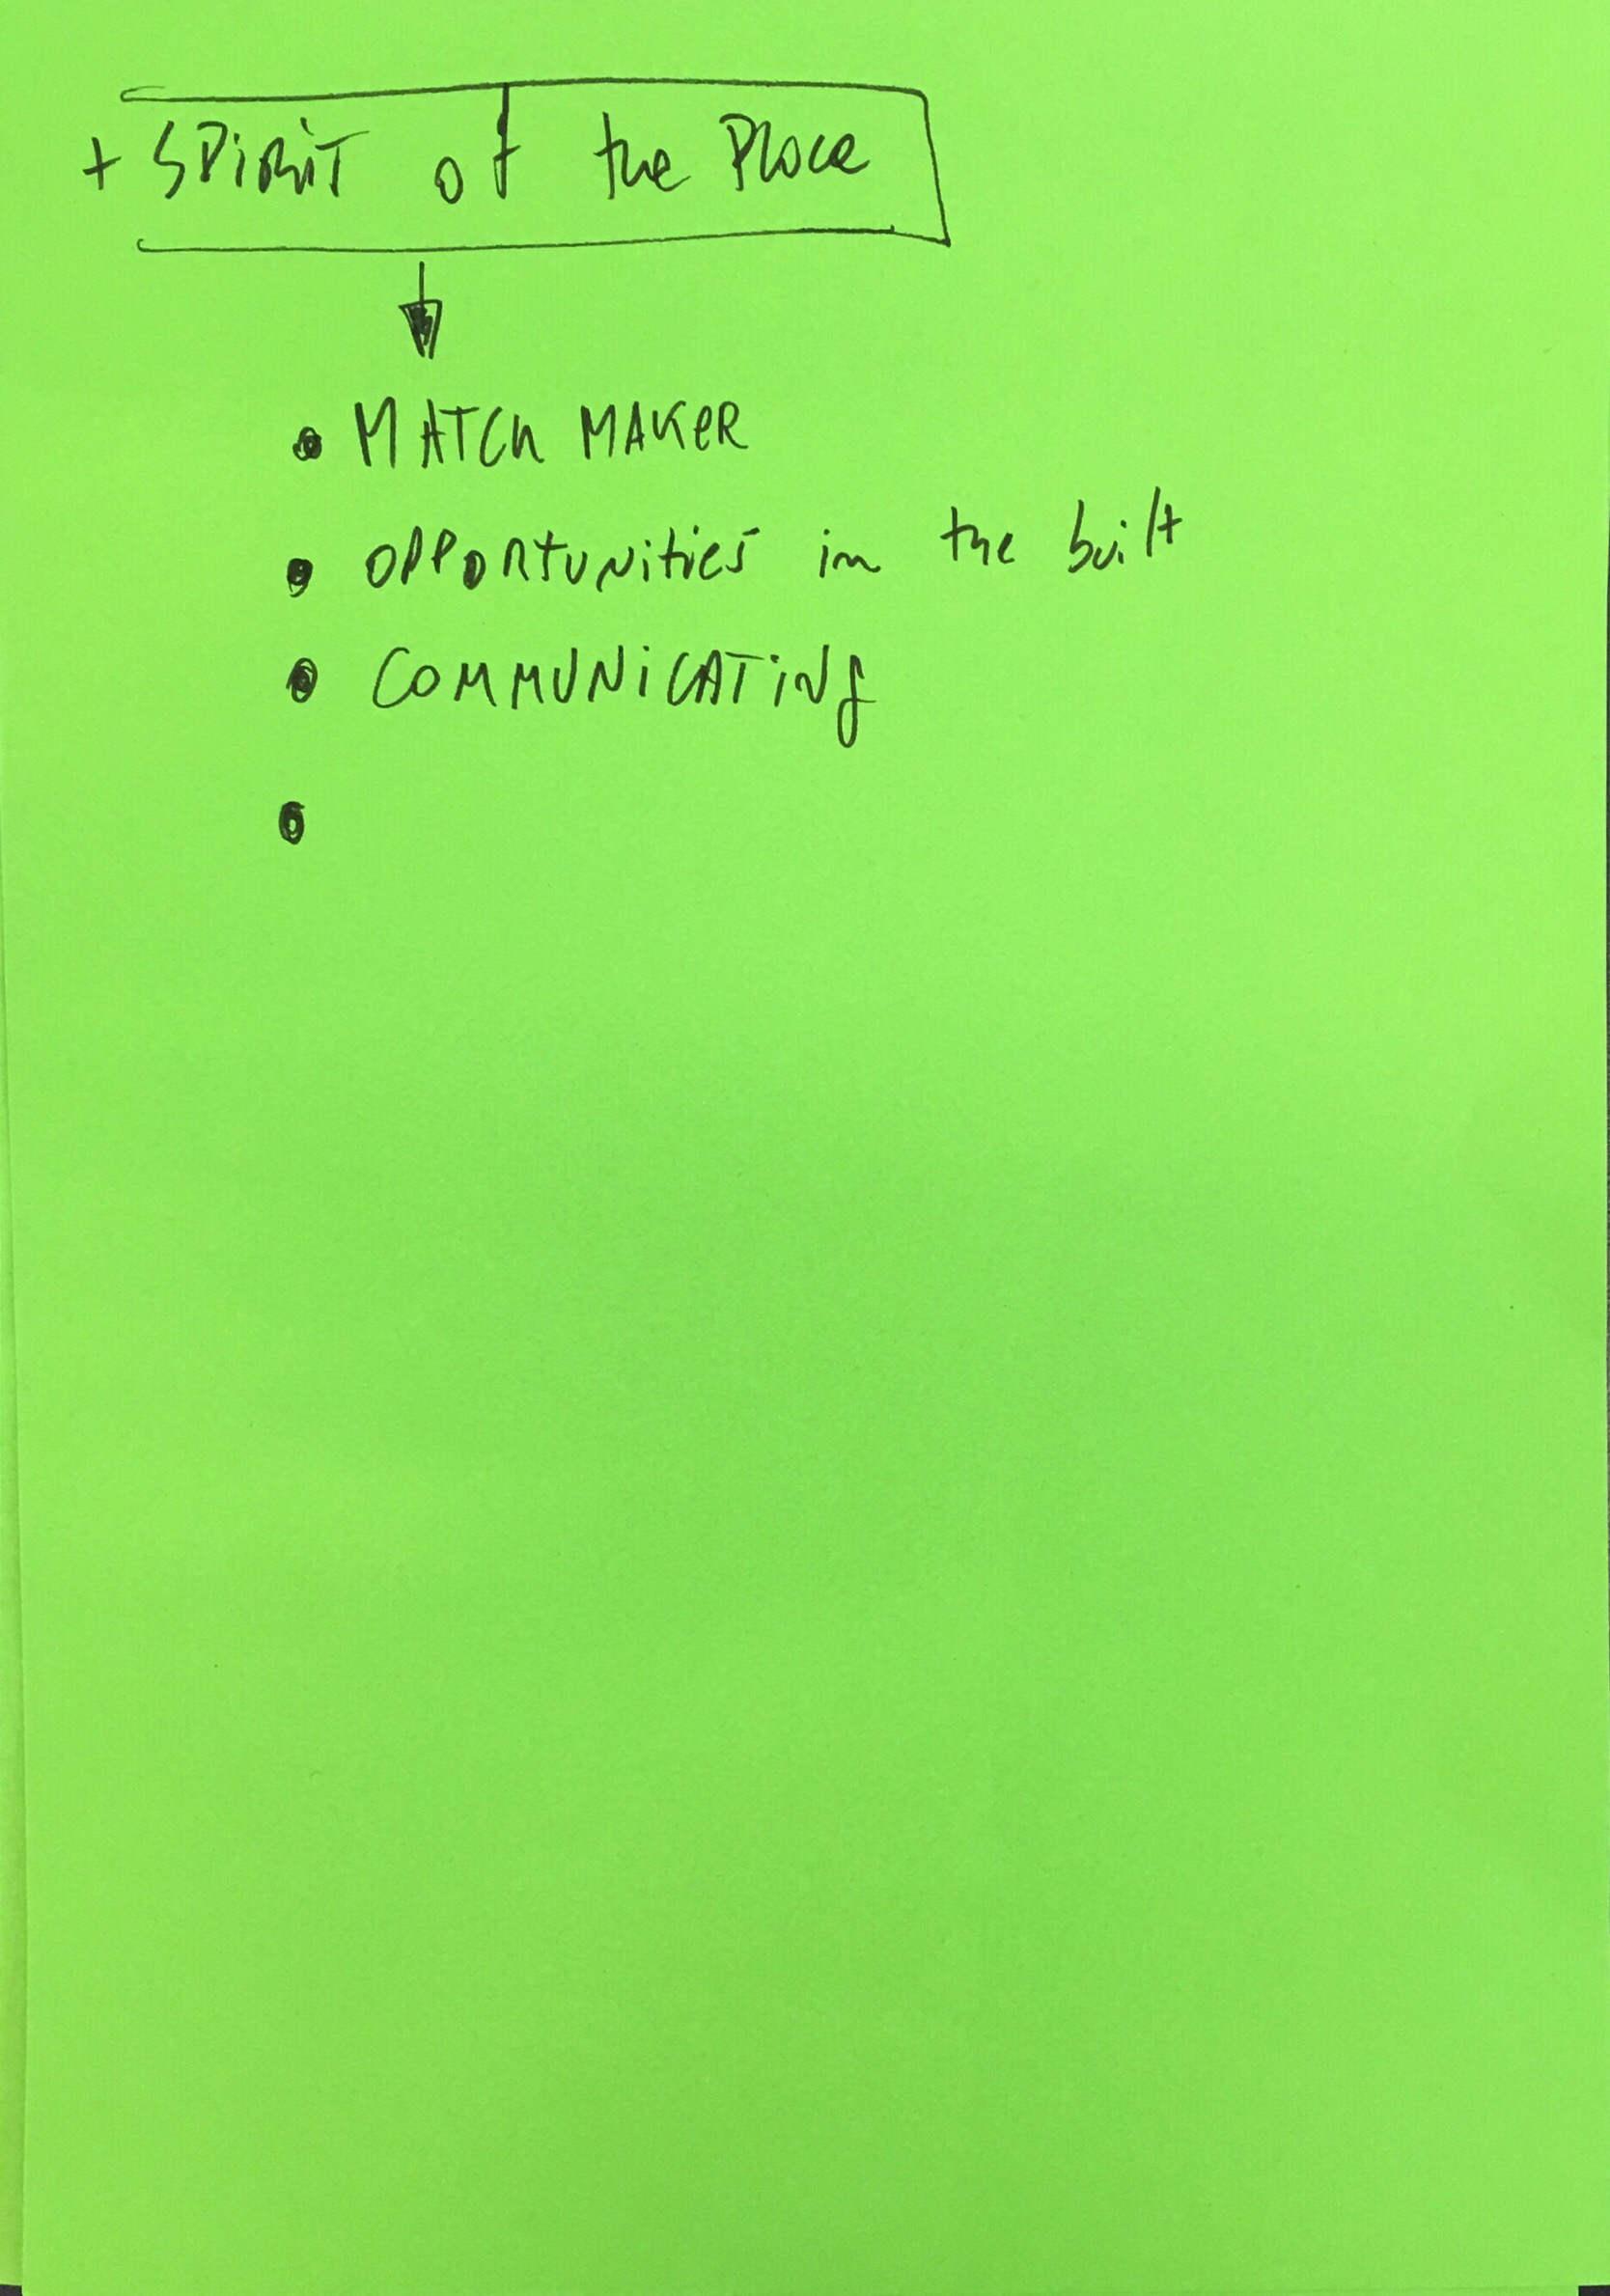 + SPiRiT of the Place
• MATCh MAKeR
• OPPORtUNities in the built
• COMMUNiCATiNg
•